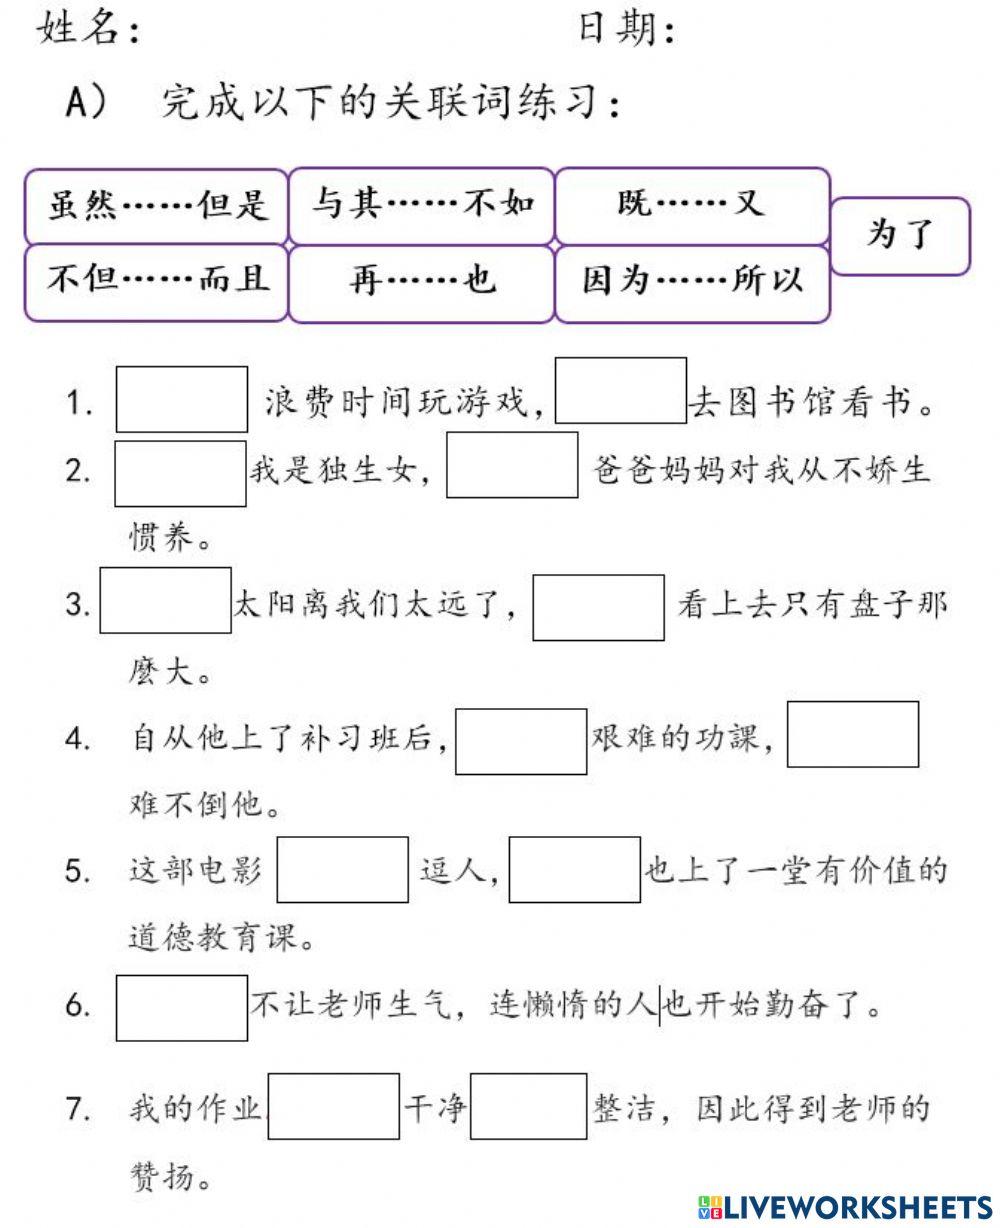 姓名： 日期：
A） 完成以下的关联词练习：
虽然……但是 与其……不如 既……又 为了
不但……而且 再……也 因为……所以
1. 浪费时间玩游戏， 去图书馆看书。
2. 我是独生女， 爸爸妈妈对我从不娇生
惯养。
3. 太阳离我们太远了， 看上去只有盘子那
麽大。
4. 自从他上了补习班后， 艰难的功課，
难不倒他。
5. 这部电影 逗人， 也上了一堂有价值的
道德教育课。
6. 不让老师生气，连懒惰的人也开始勤奋了。
7. 我的作业 干净 整洁，因此得到老师的
赞扬。
LIVEWORKSHEETS